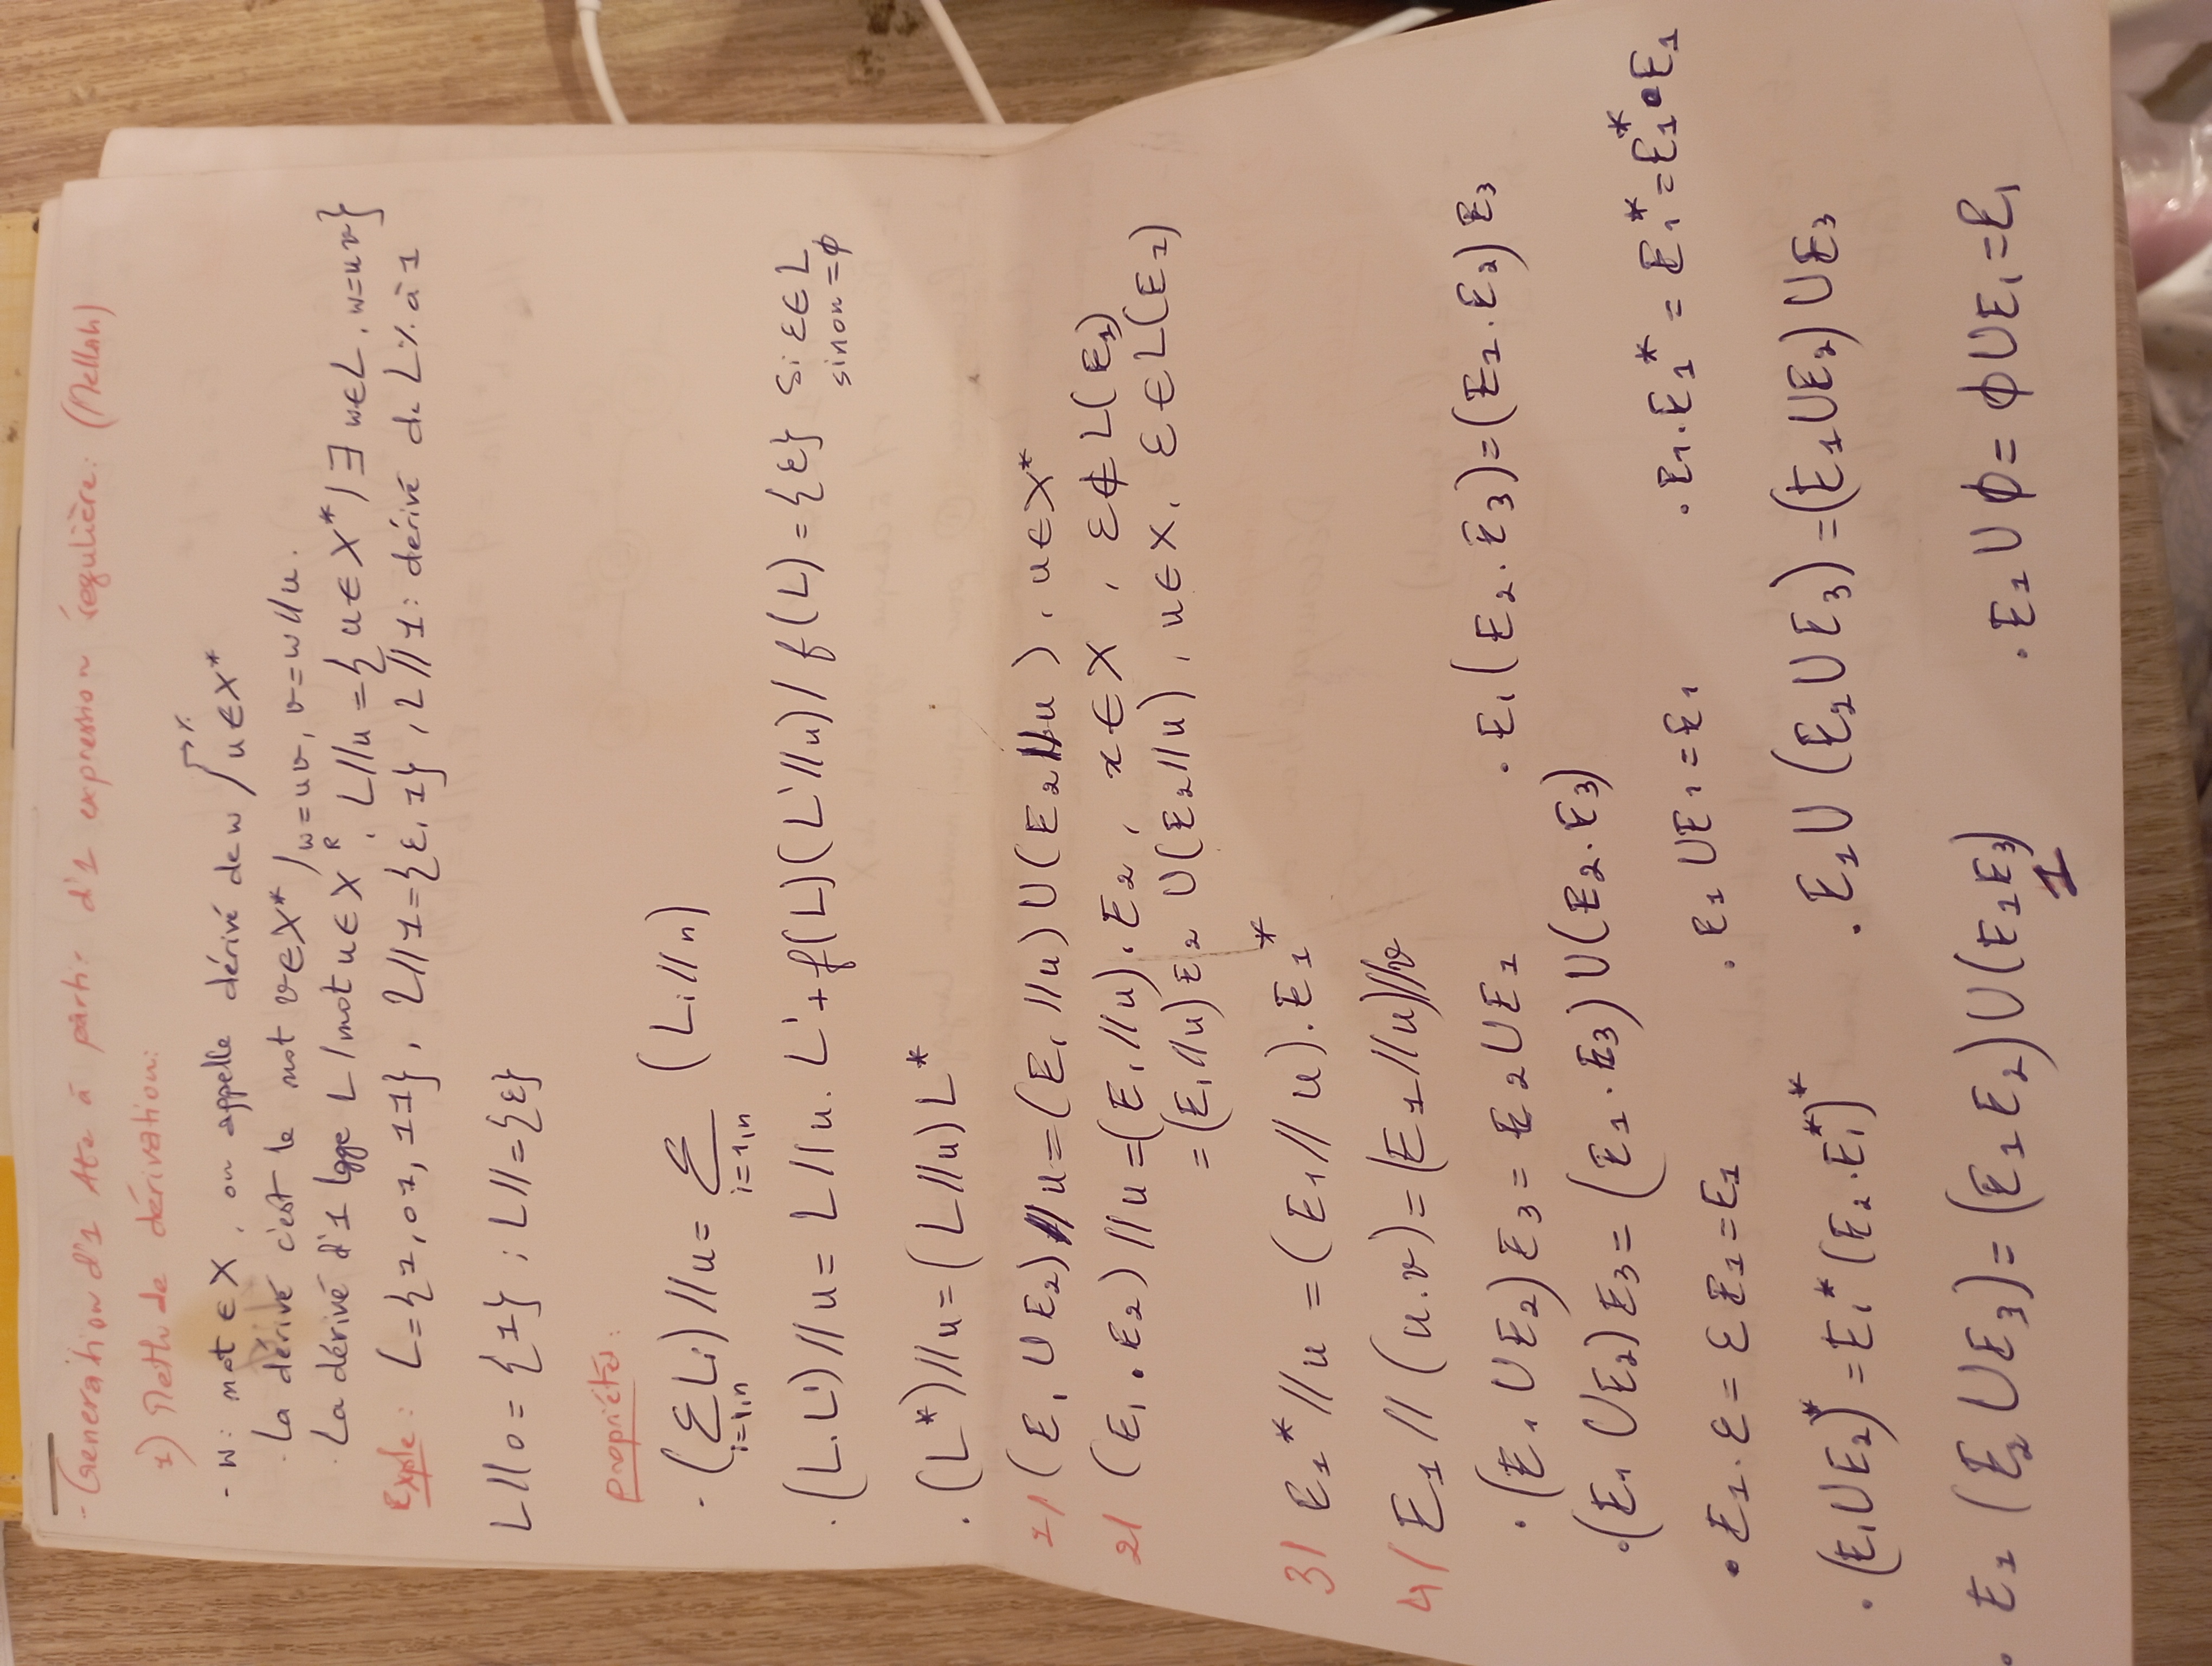 - Géneration d'1 Ate à partir d'1 expression régulière: (Mellah)
1) Methode dérivation:
- w: mot ∈ X, on appelle dérivé de w / u ∈ X*
. La dérivé c'est le mot v∈X* / w=uv, v=w//u.
. La dérivé d'1 lgge L / mot u∈X, L//u={u∈X* / ∃ w∈L, w=uv}
Exple: L={1,01,11}, L//1={ε,1}, L//1: dérivé de L % à 1
L//0={1} ; L//={ε}
propriétés:
. (Σ Li)//u= Σ (Li//u)
i=1,n i=1,n
. (L.L')//u= L//u. L'+f(L)(L'//u) / f(L)={ε} si ε∈L
sinon=ϕ
. (L*)//u=(L//u)L*
1/ (E1 U E2)//u=(E1//u)U(E2//u), u∈X*
2/ (E1.E2)//u=(E1//u).E2, x∈X, ε∉L(E1)
=(E1//u)E2 U(E2//u), u∈X, ε∈L(E1)
3/ E1*//u=(E1//u).E1*
4/ E1//(u.v)=(E1//u)//v
. (E1 U E2)E3= E2 U E1 . E1(E2.E3)=(E1.E2)E3
. (E1 U E2)E3=(E1.E3)U(E2.E3)
. E1.ε=ε E1=E1 . E1 U E1=E1 . E1.E1*=E1*=E1*.E1
. (E1 U E2)*=E1*(E2.E1*)* . E1 U(E2 U E3)=(E1 U E2)U E3
. E1(E2 U E3)=(E1E2)U(E1E3) . E1 U ϕ=ϕ U E1=E1
1